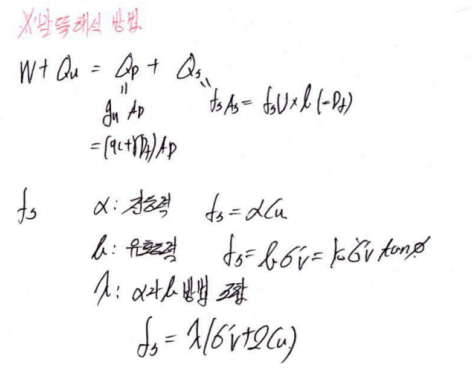 ※말뚝해석 방법
W + Qu = Qp + Qs
" "
qu Ap fsAs = fsU×l(=Df)
= (qc+γDf)Ap
fs α: 전응력 fs = αCu
β: 유효응력 fs = βσ'v = k0σ'v tanø
λ: α와 β 방법 조합
fs = λ(σ'v+2Cu)